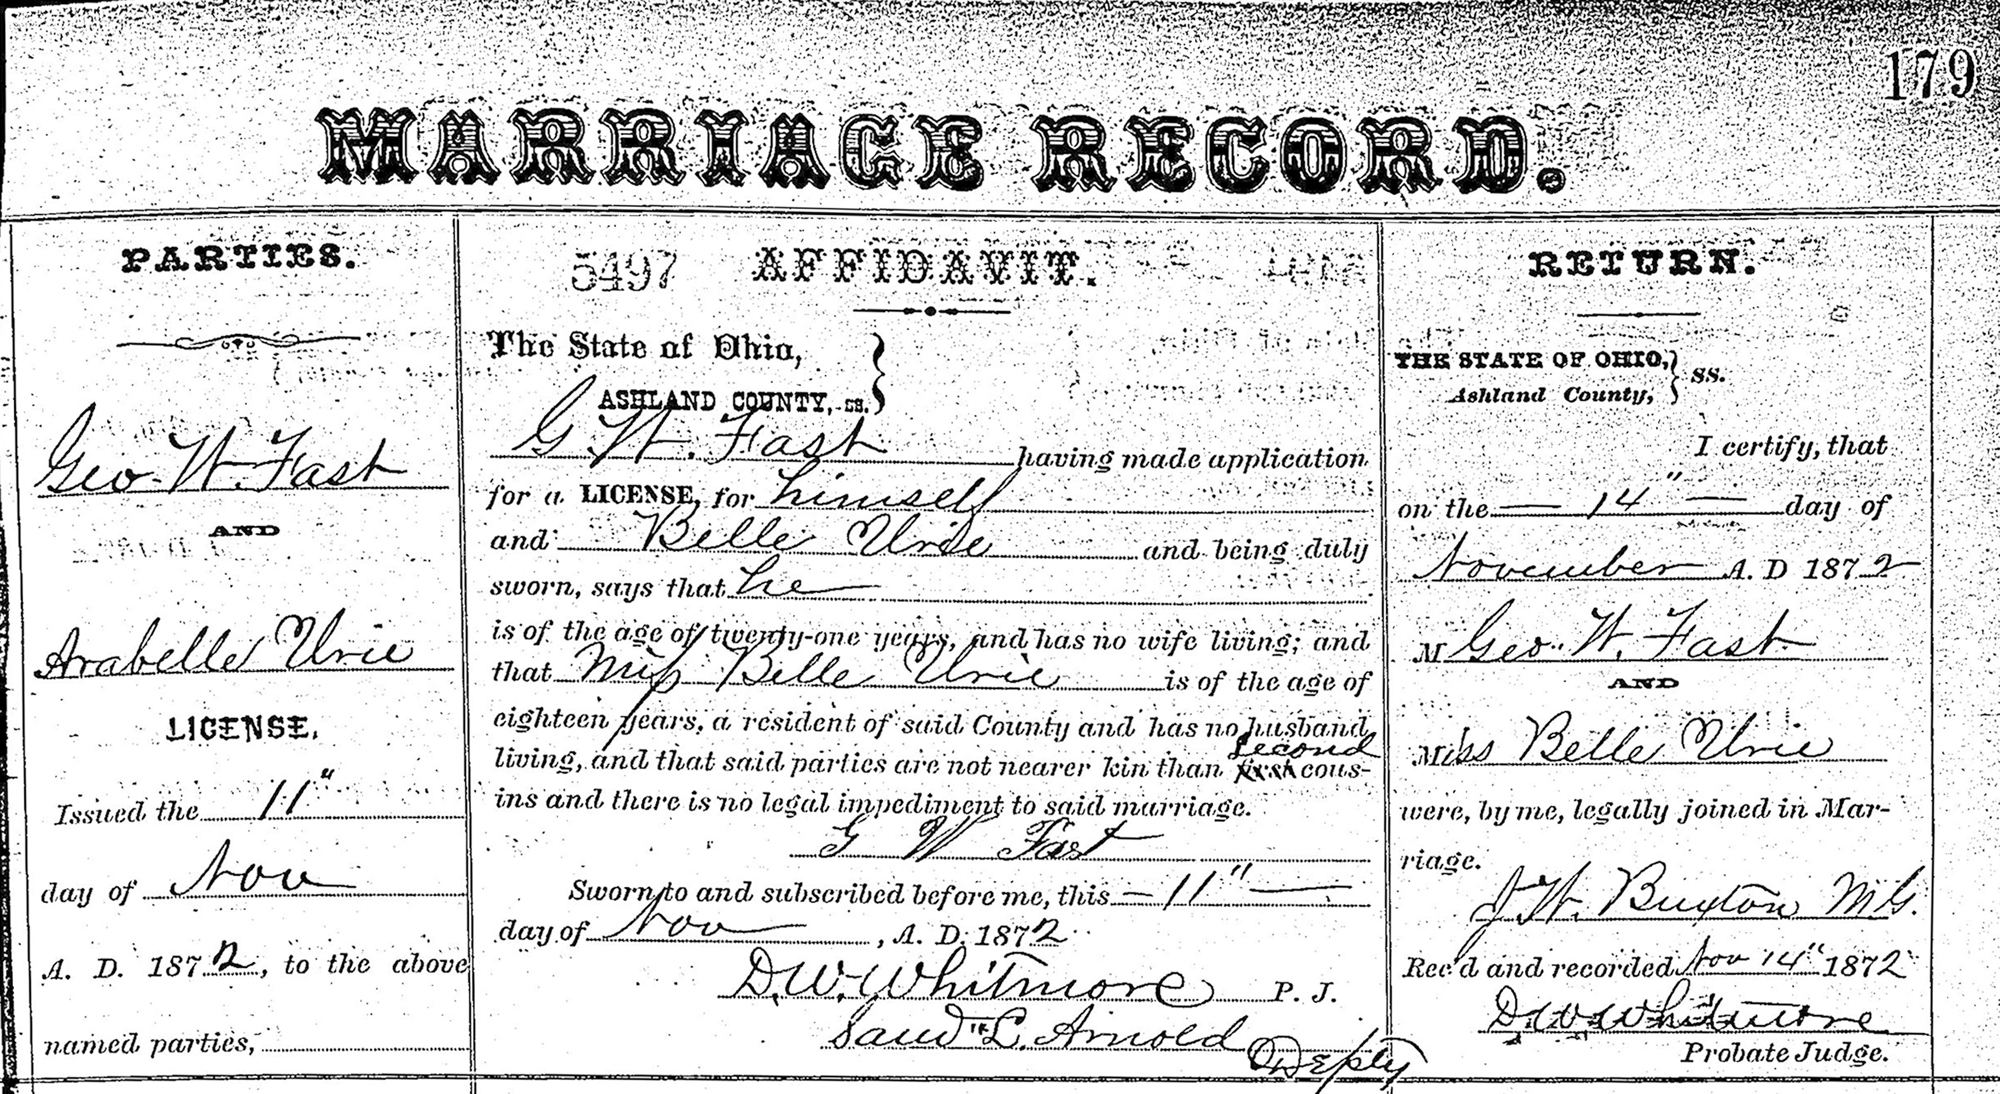 179
MARRIAGE RECORD.
PARTIES.
Geo. W. Fast
AND
Arabelle Urie
LICENSE,
Issued the 11"
day of Nov
A. D. 1872, to the above
named parties,
5497 AFFIDAVIT.
The State of Ohio,
ASHLAND COUNTY, ss.
G. W. Fast having made application
for a LICENSE, for himself
and Belle Urie and being duly
sworn, says that he
is of the age of twenty-one years, and has no wife living; and
that Miss Belle Urie is of the age of
eighteen years, a resident of said County and has no husband
second
living, and that said parties are not nearer kin than first cous-
ins and there is no legal impediment to said marriage.
G W Fast
Sworn to and subscribed before me, this 11"
day of Nov, A. D. 1872
D. W. Whitmore P. J.
L. Arnold Depty
RETURN.
THE STATE OF OHIO,
Ashland County, ss.
I certify, that
on the 14" day of
November A. D 1872
M Geo. W. Fast
AND
Miss Belle Urie
were, by me, legally joined in Mar-
riage.
J W. Buxton M G.
Rec'd and recorded Nov 14" 1872
D. W. Whitmore
Probate Judge.